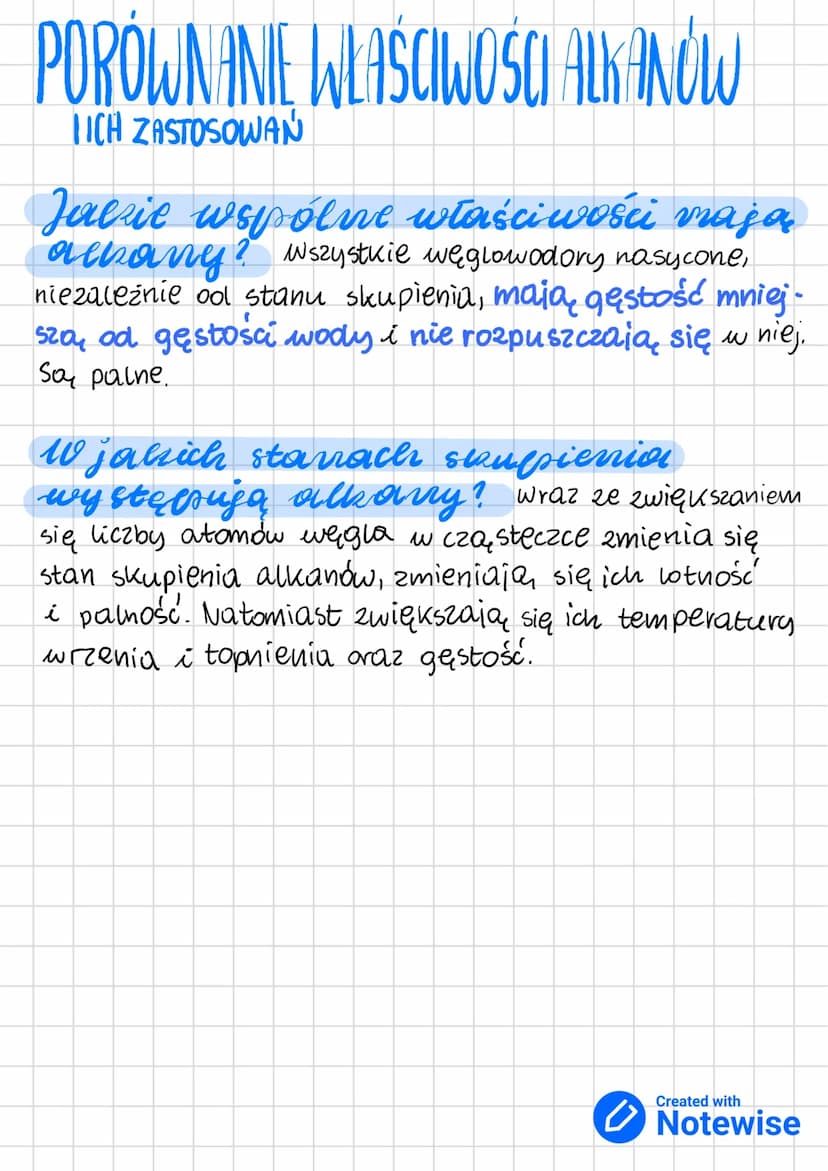 PORÓWNANIE WŁAŚCIWOŚCI ALKANÓW
I ICH ZASTOSOWAŃ
Jakie wspólne właściwości mają
alkany? Wszystkie węglowodory nasycone,
niezależnie od stanu skupienia, mają gęstość mniej-
szą od gęstości wody i nie rozpuszczają się w niej.
Są palne.
W jakich stanach skupienia
występują alkany? Wraz ze zwiększaniem
się liczby atomów węgla w cząsteczce zmienia się
stan skupienia alkanów, zmieniają się ich lotność
i palność. Natomiast zwiększają się ich temperatury
wrzenia i topnienia oraz gęstość.
Created with
Notewise